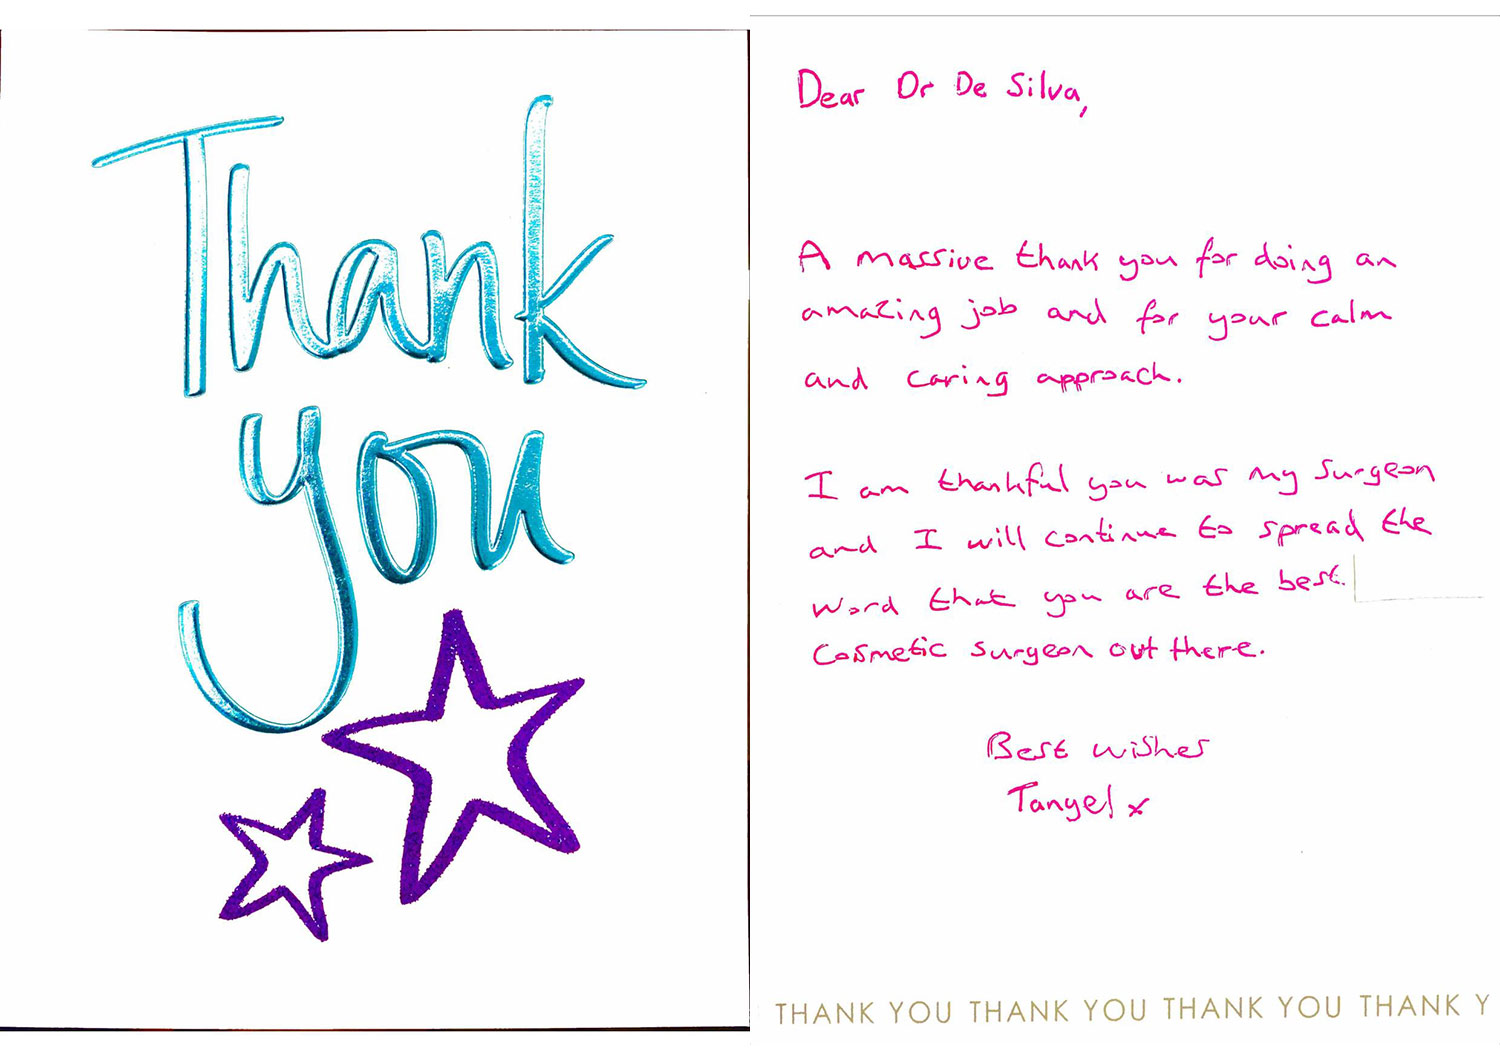 Thank
you
Dear Dr De Silva,
A massive thank you for doing an
amazing job and for your calm
and caring approach.
I am thankful you was my surgeon
and I will continue to spread the
word that you are the best.
cosmetic surgeon out there.
Best wishes
Tangel x
THANK YOU THANK YOU THANK YOU THANK Y